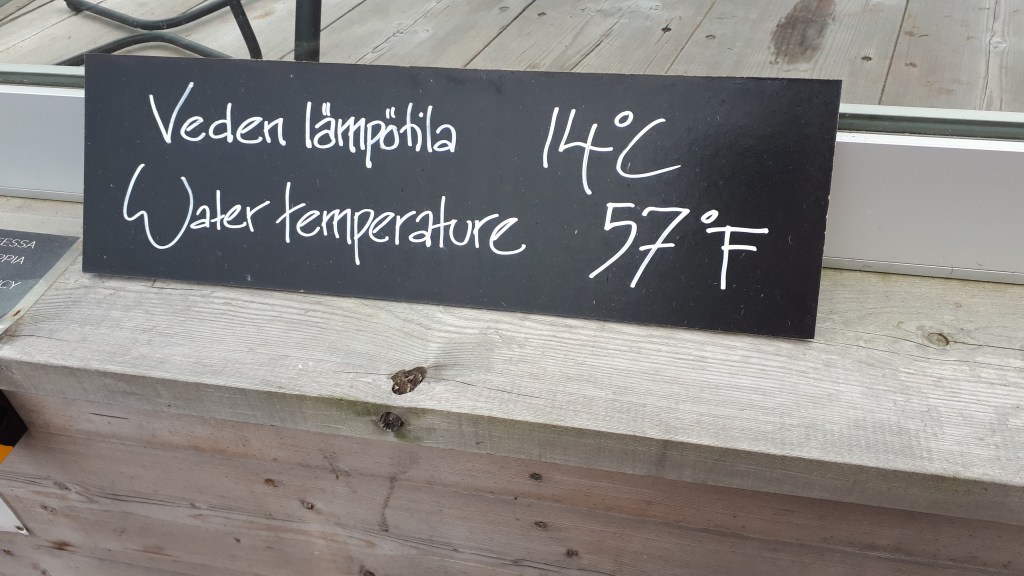 Veden lämpötila 14°C
Water temperature 57°F